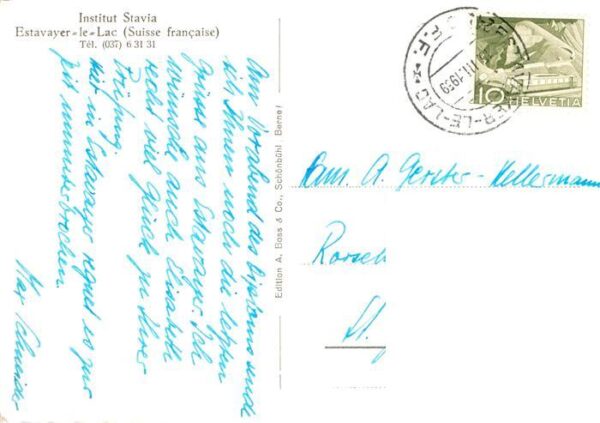 Institut Stavia
Estavayer-le-Lac (Suisse française)
Tél. (037) 6 31 31
Am Vorabend des Diploms sende
ich Ihnen noch die letzten
Grüsse aus Estavayer. Ich
wünsche auch Elisabeth
recht viel Glück zu Ihrer
Prüfung.
Hier in Estavayer regnet es zur
Zeit ununterbrochen.
Max Schneider
Edition A. Boss & Co., Schönbühl-Berne
ESTAVAYER-LE-LAC
1959
10 HELVETIA
Fam. A. Gerster-Kellermann
Rorsch
St.